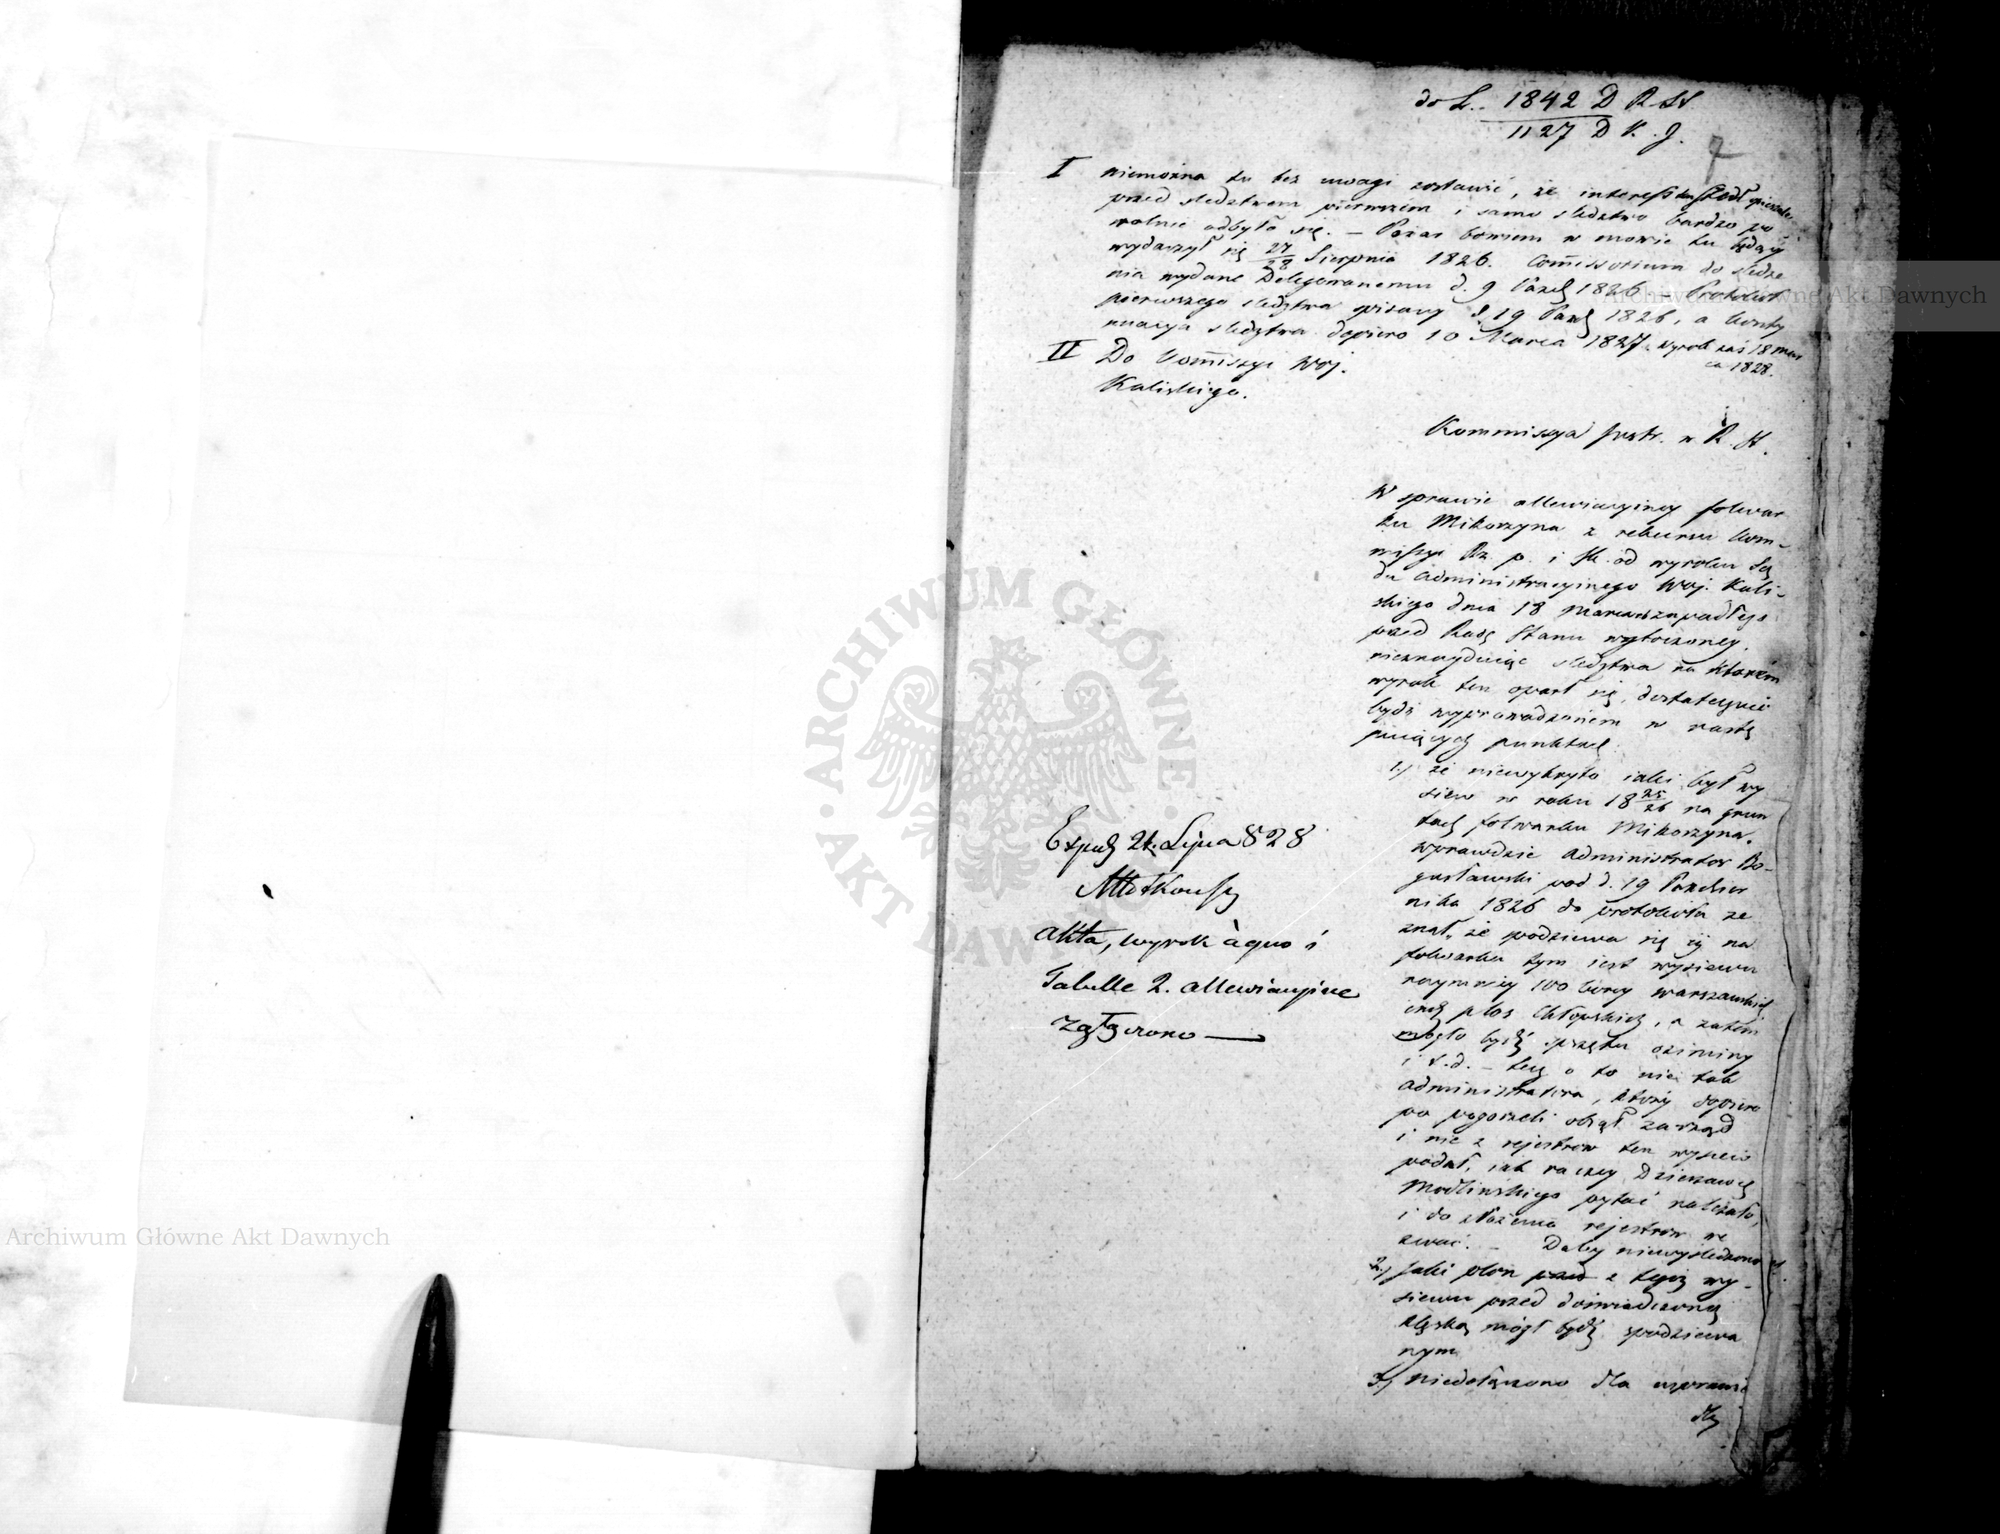 do L. 1842 D R St
1127 D K. J.
7
I niemożna tu bez uwagi zostawić, że interess ten szedł opieszale
przed śledztwem pierwszem i samo śledztwo bardzo po
wolnie odbyło się. – Pożar bowiem w mowie tu będący
wydarzył się 27/28 Sierpnia 1826. Commissorium do śledze
nia wydane Delegowanemu d. 9 Paźdz 1826 Protokół
pierwszego śledztwa spisany d. 19 Paźdz 1826, a konty
nuacja śledztwa dopiero 10 Marca 1827. Wyrok zaś 18 mar
ca 1828.
II Do Kommissyi Woj.
Kaliskiego.
Kommissya w R. St.
W sprawie allewiacyiney folwar
ku Mikorzyna z rekursu Kom-
missyi Rz. p. i Sk. od wyroku Są
du Administracyinego Woj. Kali-
skiego dnia 18 Marca zapadłego
przed Radę Stanu wytoczoney,
nieznayduiąc śledztwa na którém
wyrok ten oparł się, dostatecznie
bydź wyprowadzonem w nastę
puiących punktach
1.) że niewykryto iaki był wy
siew w roku 1825/26 na grun
tach folwarku Mikorzyna.
wprawdzie Administrator Bo-
gusławski pod d. 19 Paździer
nika 1826 do protokółu ze
znał, że spodziewa się iż na
folwarku tym iest wysiewu
naymniey 100 korcy warszawskich
a zatem
mogło bydź sprzętu oziminy
i t. d. – lecz o to nie tak
Administratora, który dopiero
po pogorzeli obiął zarząd
i nie z rejestrów ten wysiew
podał, iak raczey Dzierzawcę
Modlińskiego pytać należało,
i do złożenia rejestrów we
zwać. – Daley niewyśledzono
2.) Jaki plon z tegoż wy-
siewu przed doświadczoną
klęską mógł bydź spodziewa
nym
3.) niedołączono dla usprawie
dli
Exped 21. Lipca 828
Akta, wyrok à quo i
Tabelle 2. allewiacyine
załączono —
Archiwum Główne Akt Dawnych
Archiwum Główne Akt Dawnych
ARCHIWUM GŁÓWNE AKT DAWNYCH